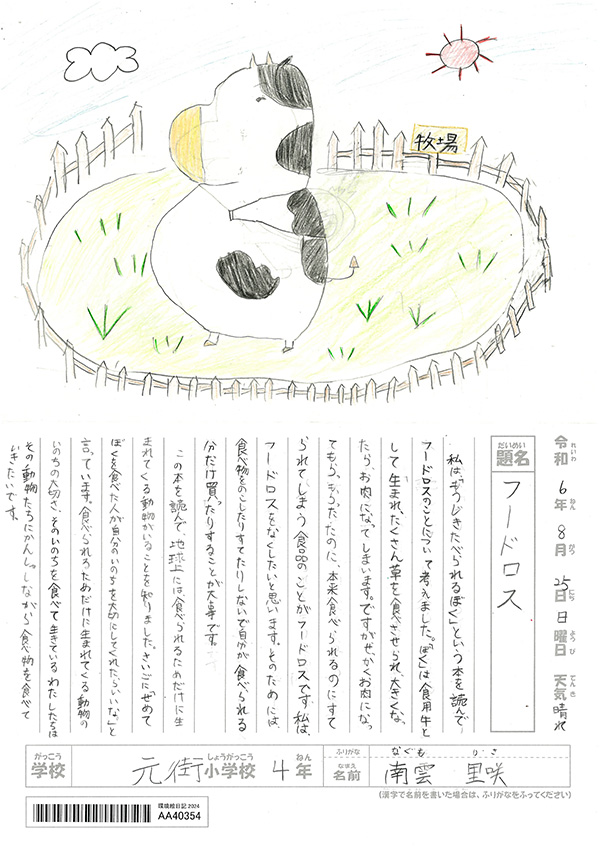 牧場
令和6年8月25日日曜日 天気晴れ
れいわ ねん がつ にち ようび てんき
だいめい
題名 フードロス
私は、「もうじきたべられるぼく」という本を読んで
フードロスのことについて考えました。「ぼく」は食用牛と
して生まれ、たくさん草を食べさせられ、大きくな、
たら、お肉になってしまいます。ですがぜっかくお肉になっ
てもらったのに、本来食べられるのにすて
られてしまう食品のことがフードロスです。私は、
フードロスをなくしたいと思います。そのためには、
食べ物をのこしたりすてたりしないで自分が食べられる
分だけ買ったりすることが大事です。
この本を読んで、地球上には、食べられるためだけに生
まれてくる動物がいることを知りました。さいごに「せめて
ぼくを食べた人が自分のいのちを大切にしてくれたらいいな」と
言っています。食べられるためだけに生まれてくる動物の
いのちの大切さ、そのいのちを食べて生きているわたしたちは
その動物たちにかんしゃしながら食べ物を食べて
いきたいです。
がっこう しょうがっこう ねん ふりがな なぐも りさ
学校 元街小学校 4年 なまえ 名前 南雲 里咲
(漢字で名前を書いた場合は、ふりがなをふってください)
環境絵日記 2024
AA40354